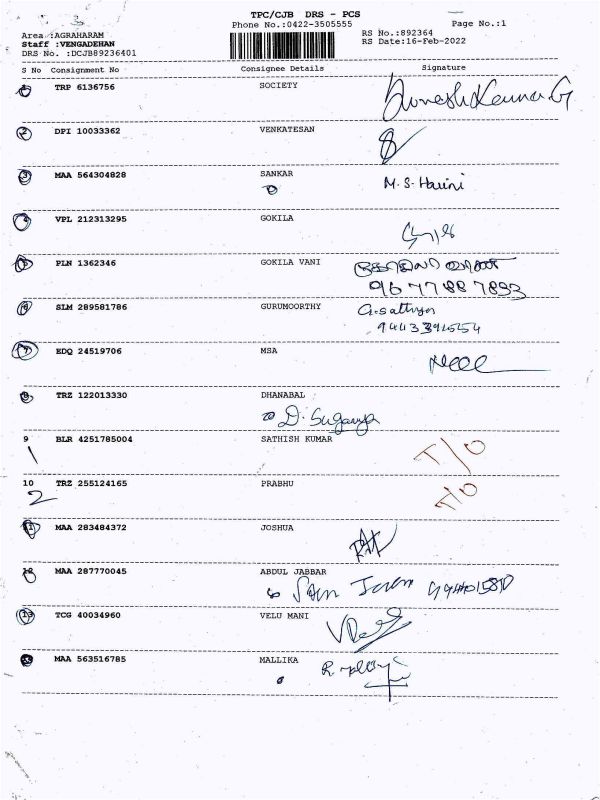 3
TPC/CJB DRS - PCS
Phone No.:0422-3505555
Page No.:1
Area :AGRAHARAM
RS No.:892364
Staff :VENGADEHAN
RS Date:16-Feb-2022
DRS No. :DCJB89236401
S No Consignment No Consignee Details Signature
1 TRP 6136756 SOCIETY
2 DPI 10033362 VENKATESAN
3 MAA 564304828 SANKAR
M.S. Harini
4 VPL 212313295 GOKILA
5 PLN 1362346 GOKILA VANI
6 SLM 289581786 GURUMOORTHY
G.sathya
7 EDQ 24519706 MSA
8 TRZ 122013330 DHANABAL
D. Suganya
9 BLR 4251785004 SATHISH KUMAR
1 T/O
10 TRZ 255124165 PRABHU
2 T/O
11 MAA 283484372 JOSHUA
12 MAA 287770045 ABDUL JABBAR
13 TCG 40034960 VELU MANI
14 MAA 563516785 MALLIKA